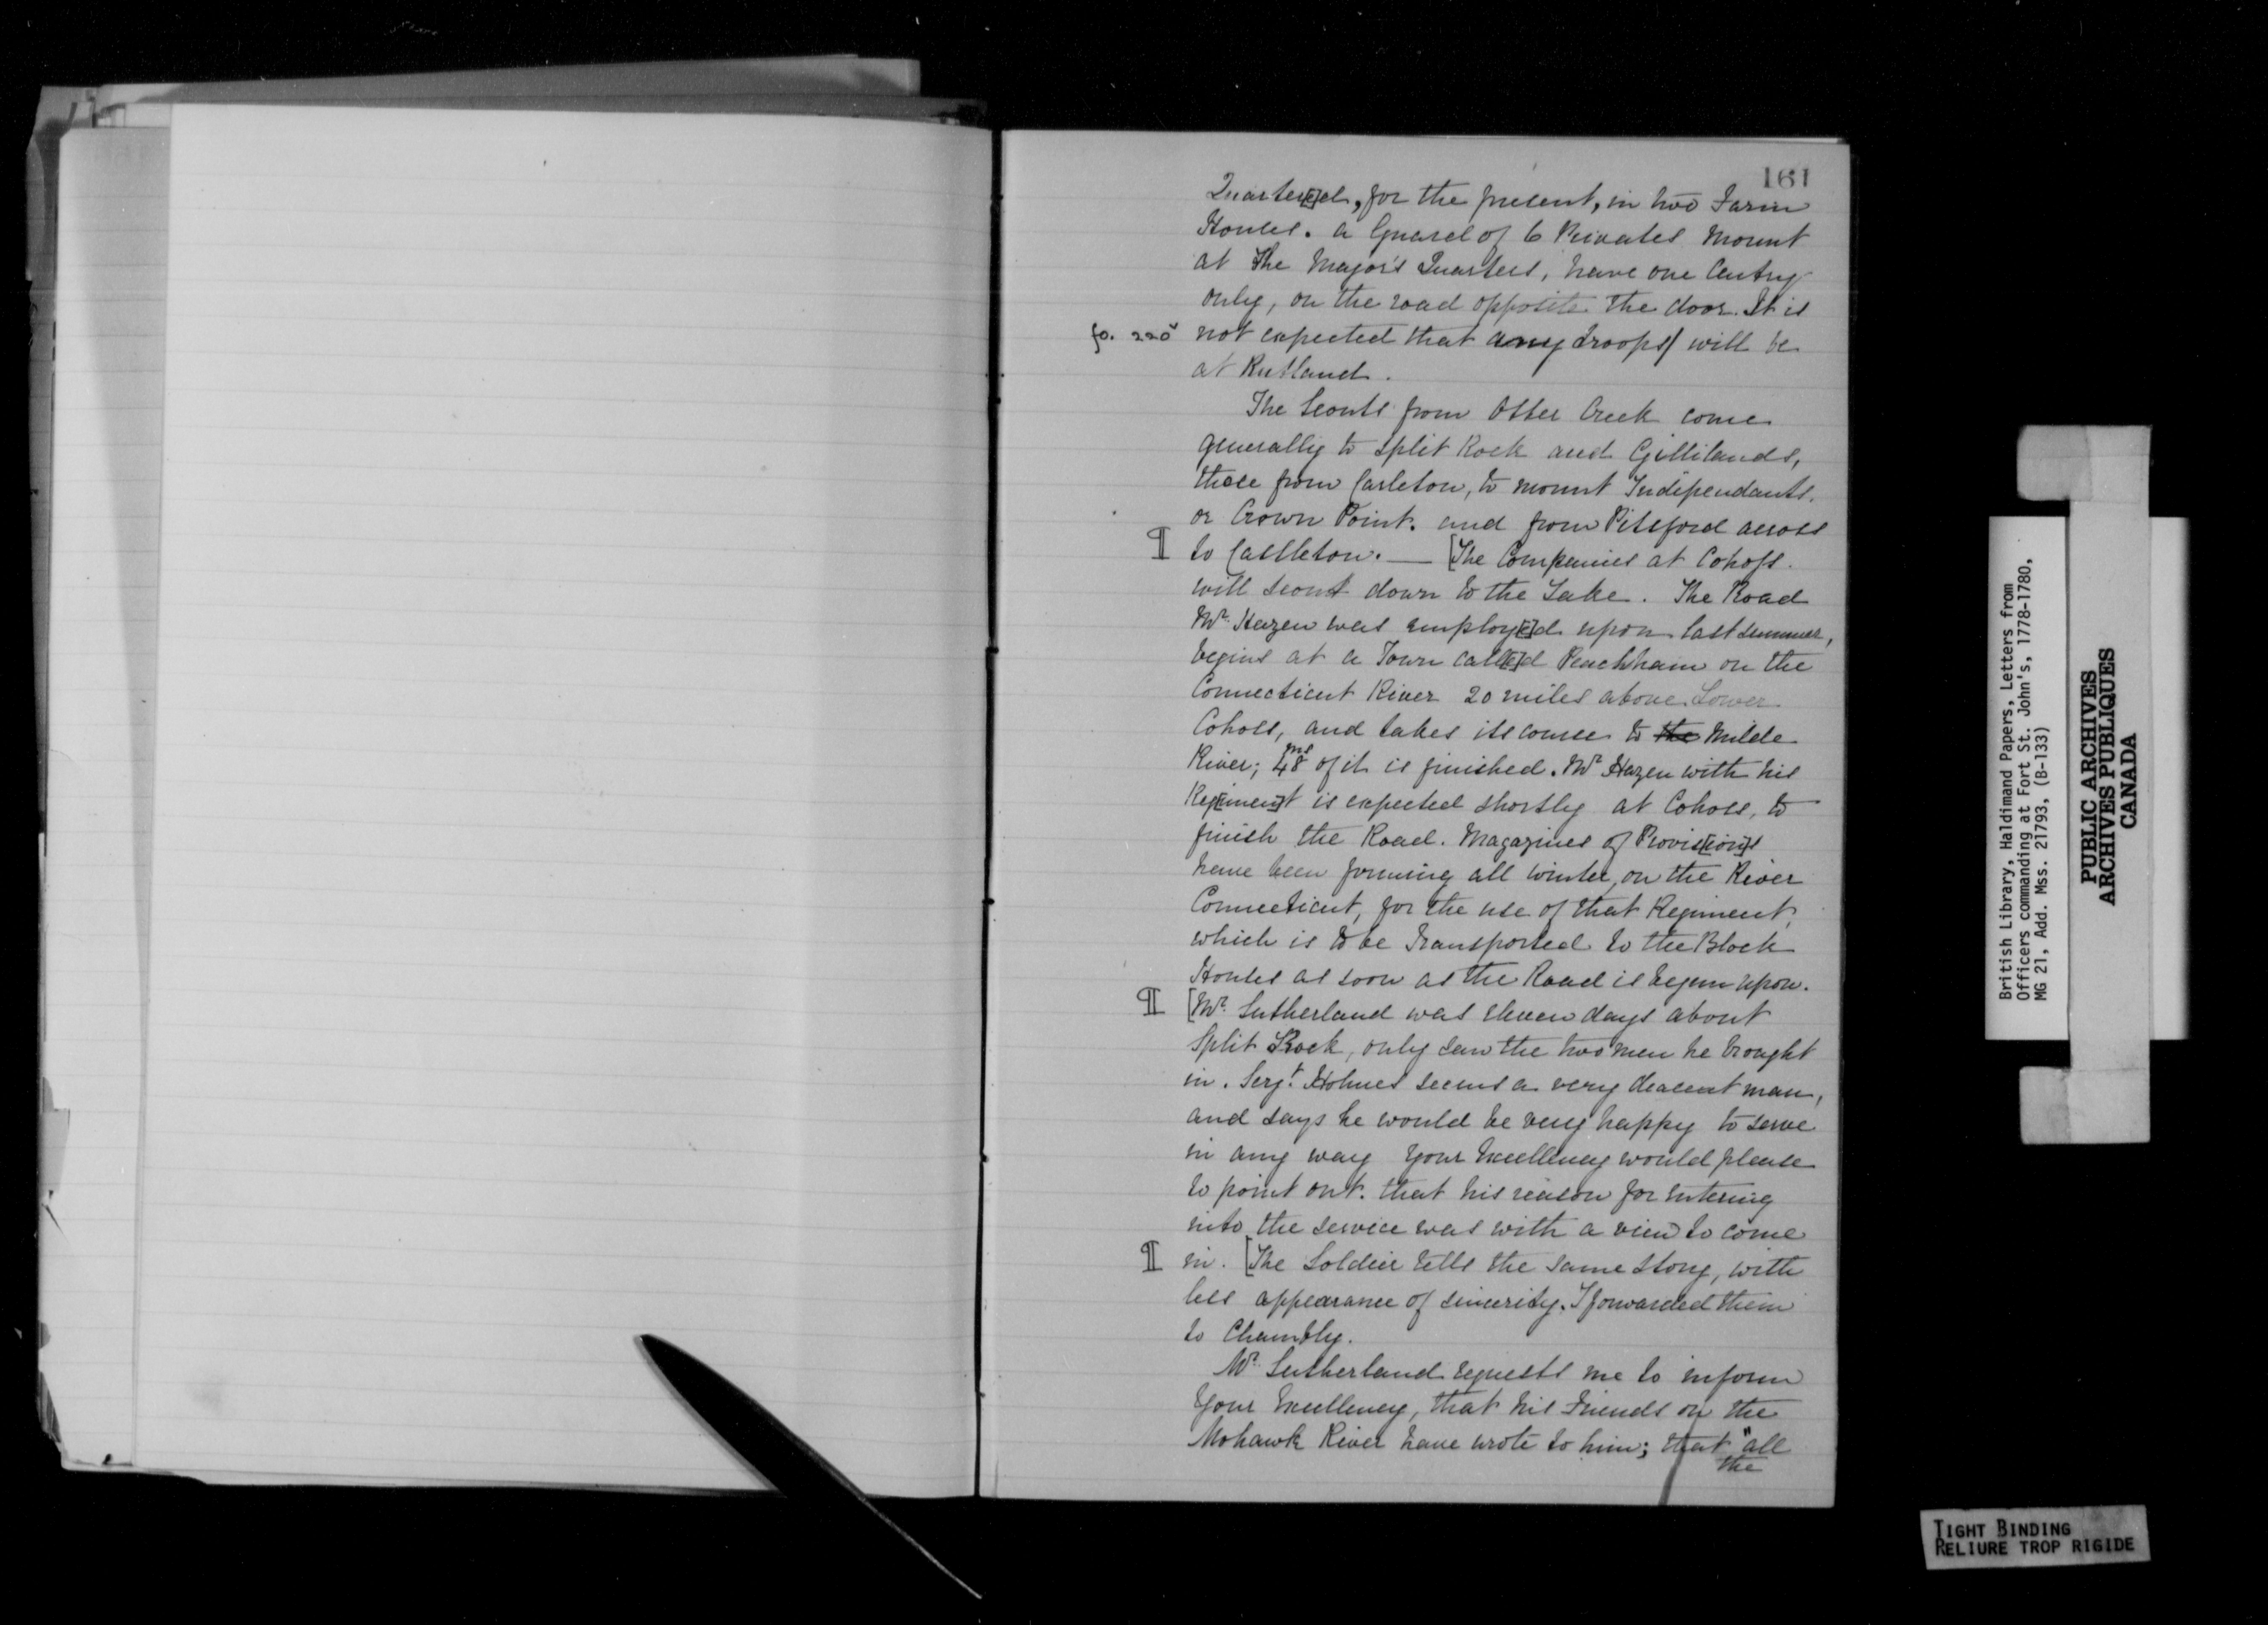 161
Quarter[e]d, for the present, in two Farm
Houses. a Guard of 6 Privates Mount
at The Major's Quarters, have one Centry
only, on the road opposite the door. It is
fo. 220v not expected that any troops/ will be
at Rutland.
The Scouts from Otter Creek come
generally to split Rock and Gillilands,
those from Carleton, to mount Independants.
or Crown Point. and from Pitsford across
¶ to Castleton. — [The Companies at Cohoss.
will scout down to the Lake. The Road
Mr. Hazen was employ[e]d upon last summer,
begins at a Town call[e]d Peachham on the
Connecticut River 20 miles above Lower
Cohoss, and takes its course to the Misle
River; 48 ms of it is finished. Mr Hazen with his
Reg[imen]t is expected shortly at Cohoss, to
finish the Road. Magazines of Provis[ion]s
have been forming all winter, on the River
Connecticut, for the use of that Regiment,
which is to be transported to the Block
Houses as soon as the Road is begun upon.
¶ [Mr. Sutherland was eleven days about
Split Rock, only saw the two men he brought
in. Serjt. Holmes seems a very deacent man,
and says he would be very happy to serve
in any way Your Excellency would please
to point out. that his reason for entering
into the service was with a view to come
¶ in. [The Soldier tells the same story, with
less appearance of sincerity. I forwarded them
to Chambly.
Mr. Sutherland requests me to inform
Your Excellency, that his Friends on the
Mohawk River have wrote to him; that "all
the
British Library, Haldimand Papers, Letters from
Officers commanding at Fort St. John's, 1778-1780,
MG 21, Add. Mss. 21793, (B-133)
PUBLIC ARCHIVES
ARCHIVES PUBLIQUES
CANADA
TIGHT BINDING
RELIURE TROP RIGIDE